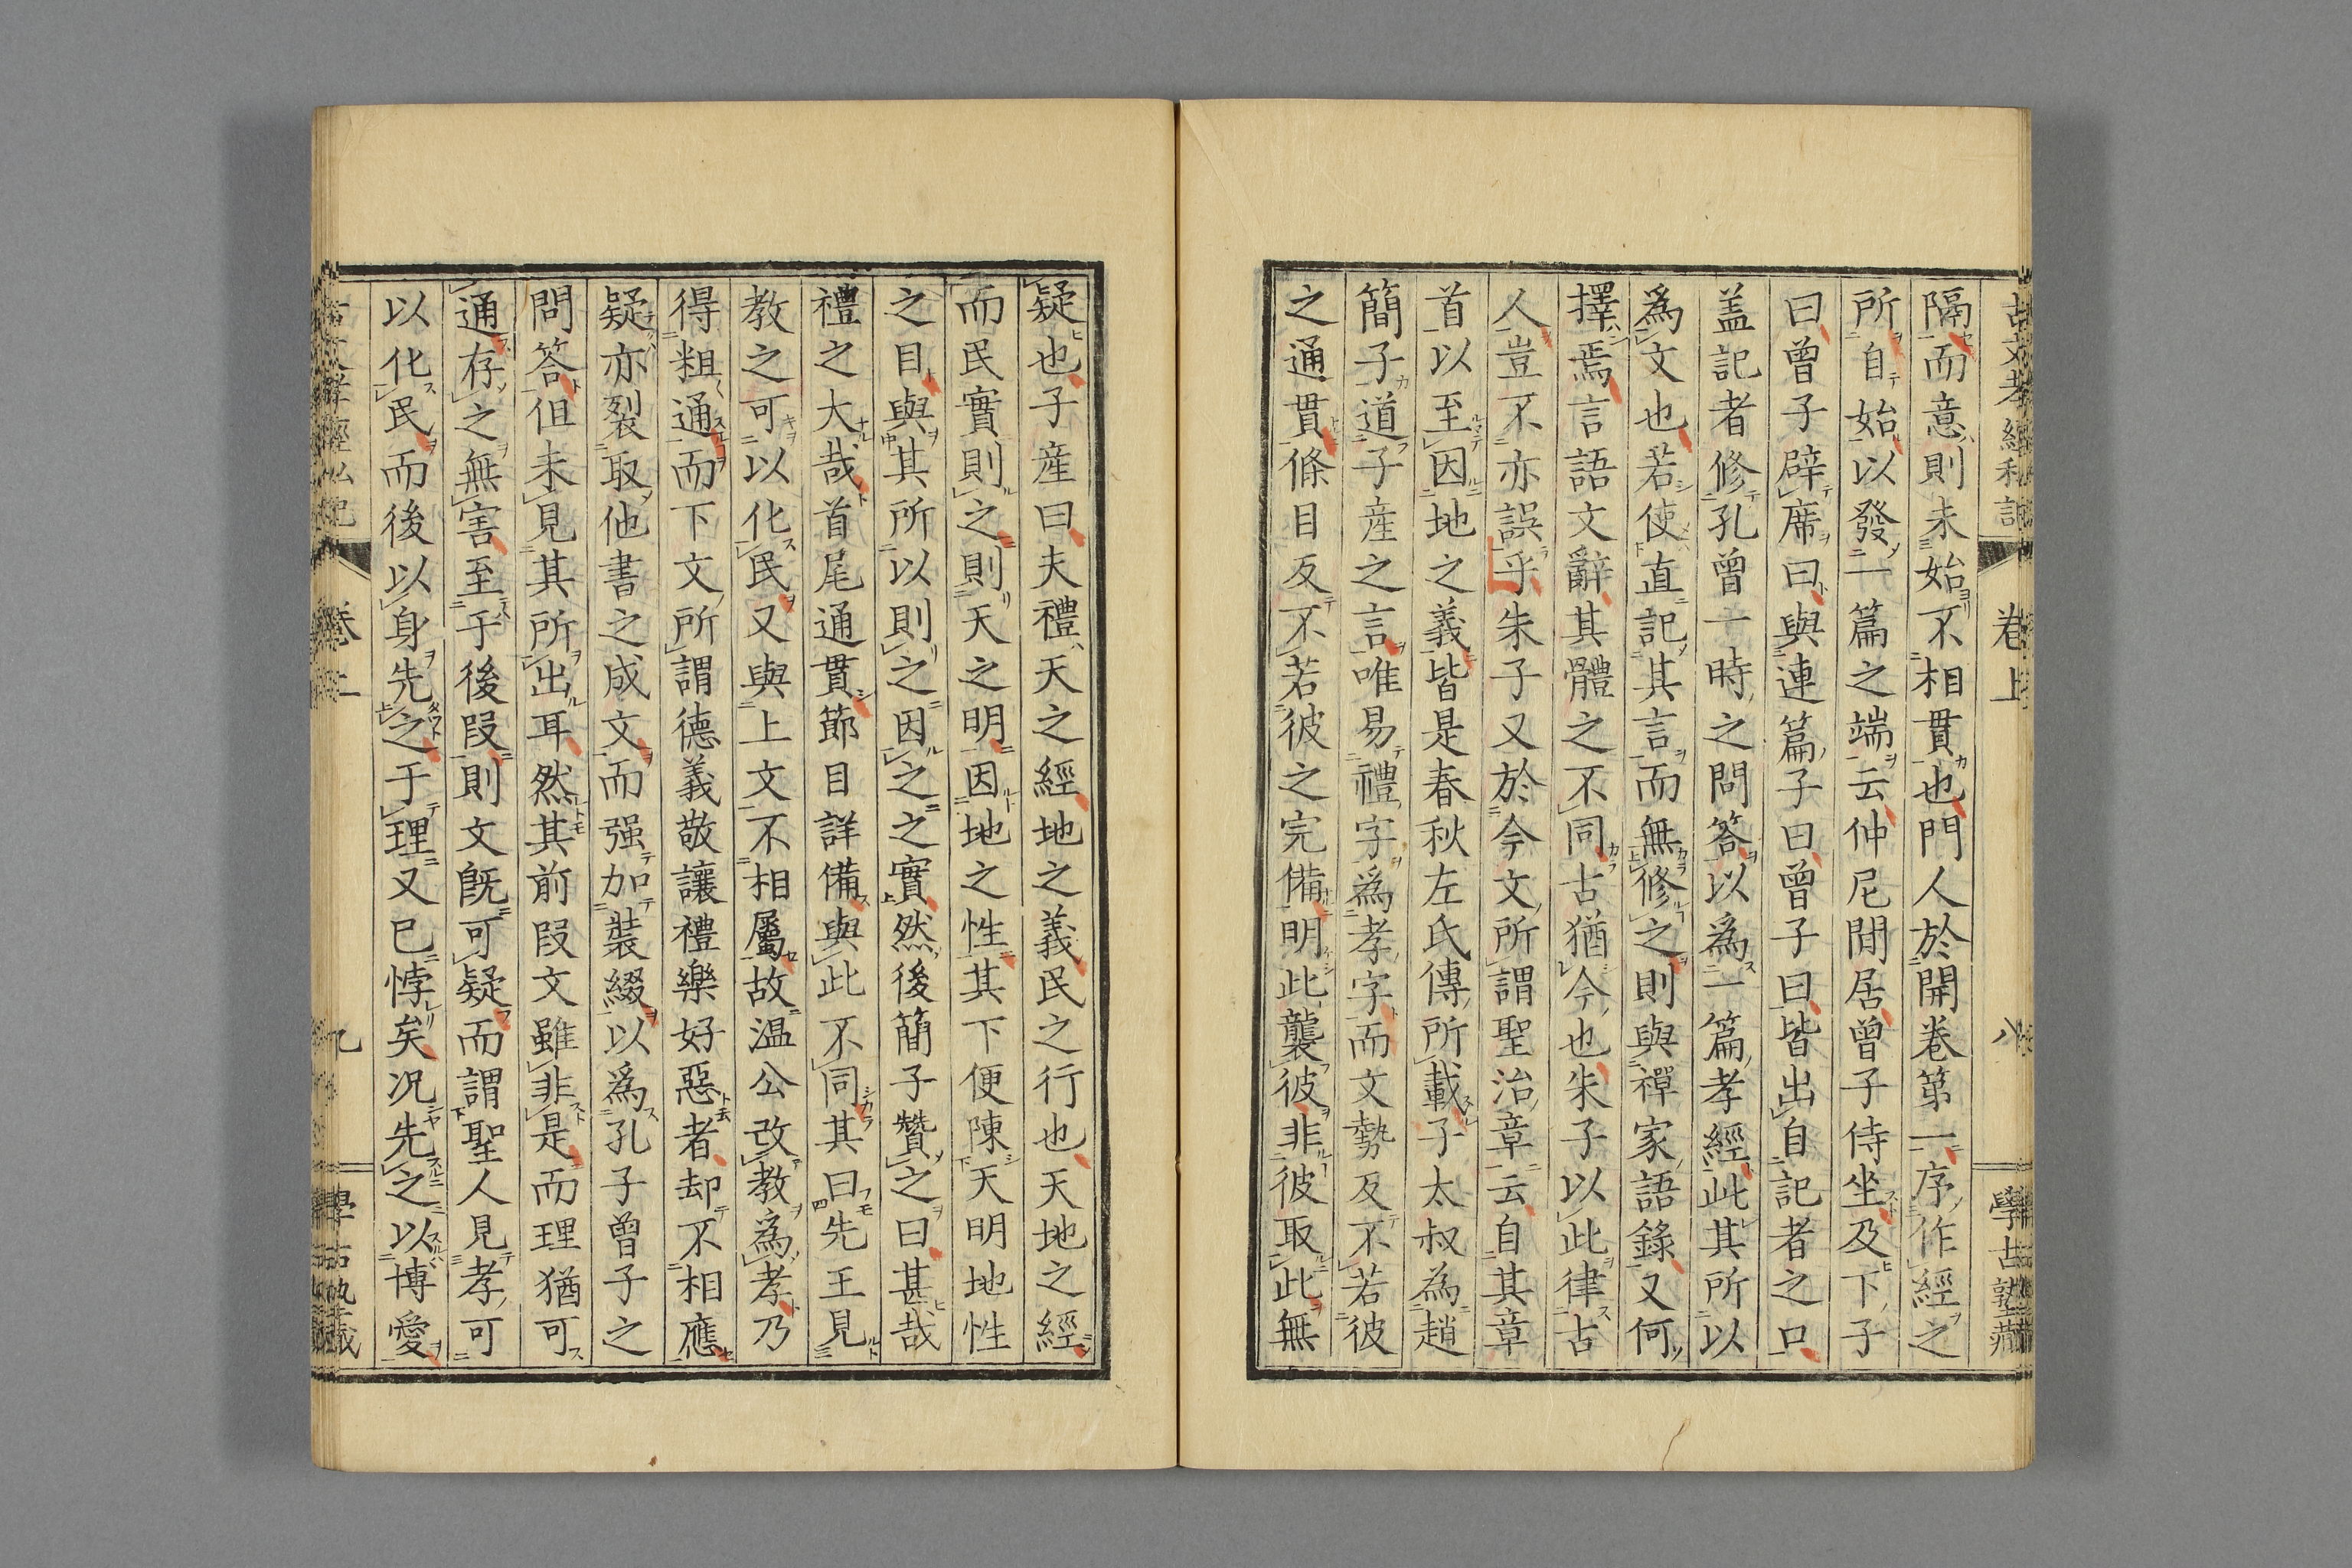 古文孝經私記 卷上 八 學古塾藏
隔而意則未始不相貫也門人於開卷第一序作經之
所自始以發一篇之端云仲尼間居曾子侍坐及下子
曰曾子辟席曰與連篇子曰曾子曰皆出自記者之口
盖記者修孔曾一時之問答以爲一篇孝經此其所以
爲文也若使直記其言而無修之則與禪家語錄又何
擇焉言語文辭其體之不同古猶今也朱子以此律古
人豈不亦誤乎朱子又於今文所謂聖治章云自其章
首以至因地之義皆是春秋左氏傳所載子太叔為趙
簡子道子産之言唯易禮字爲孝字而文勢反不若彼
之通貫條目反不若彼之完備明此襲彼非彼取此無
疑也子産曰夫禮天之經地之義民之行也天地之經
而民實則之則天之明因地之性其下便陳天明地性
之目與其所以則之因之之實然後簡子贊之曰甚哉
禮之大哉首尾通貫節目詳備與此不同其曰先王見
教之可以化民又與上文不相屬故温公改教爲孝乃
得粗通而下文所謂德義敬讓禮樂好惡者却不相應
疑亦裂取他書之成文而强加裝綴以爲孔子曾子之
問答但未見其所出耳然其前段文雖非是而理猶可
通存之無害至于後段則文旣可疑而謂聖人見孝可
以化民而後以身先之于理又已悖矣况先之以博愛
卷上 九 學古塾藏